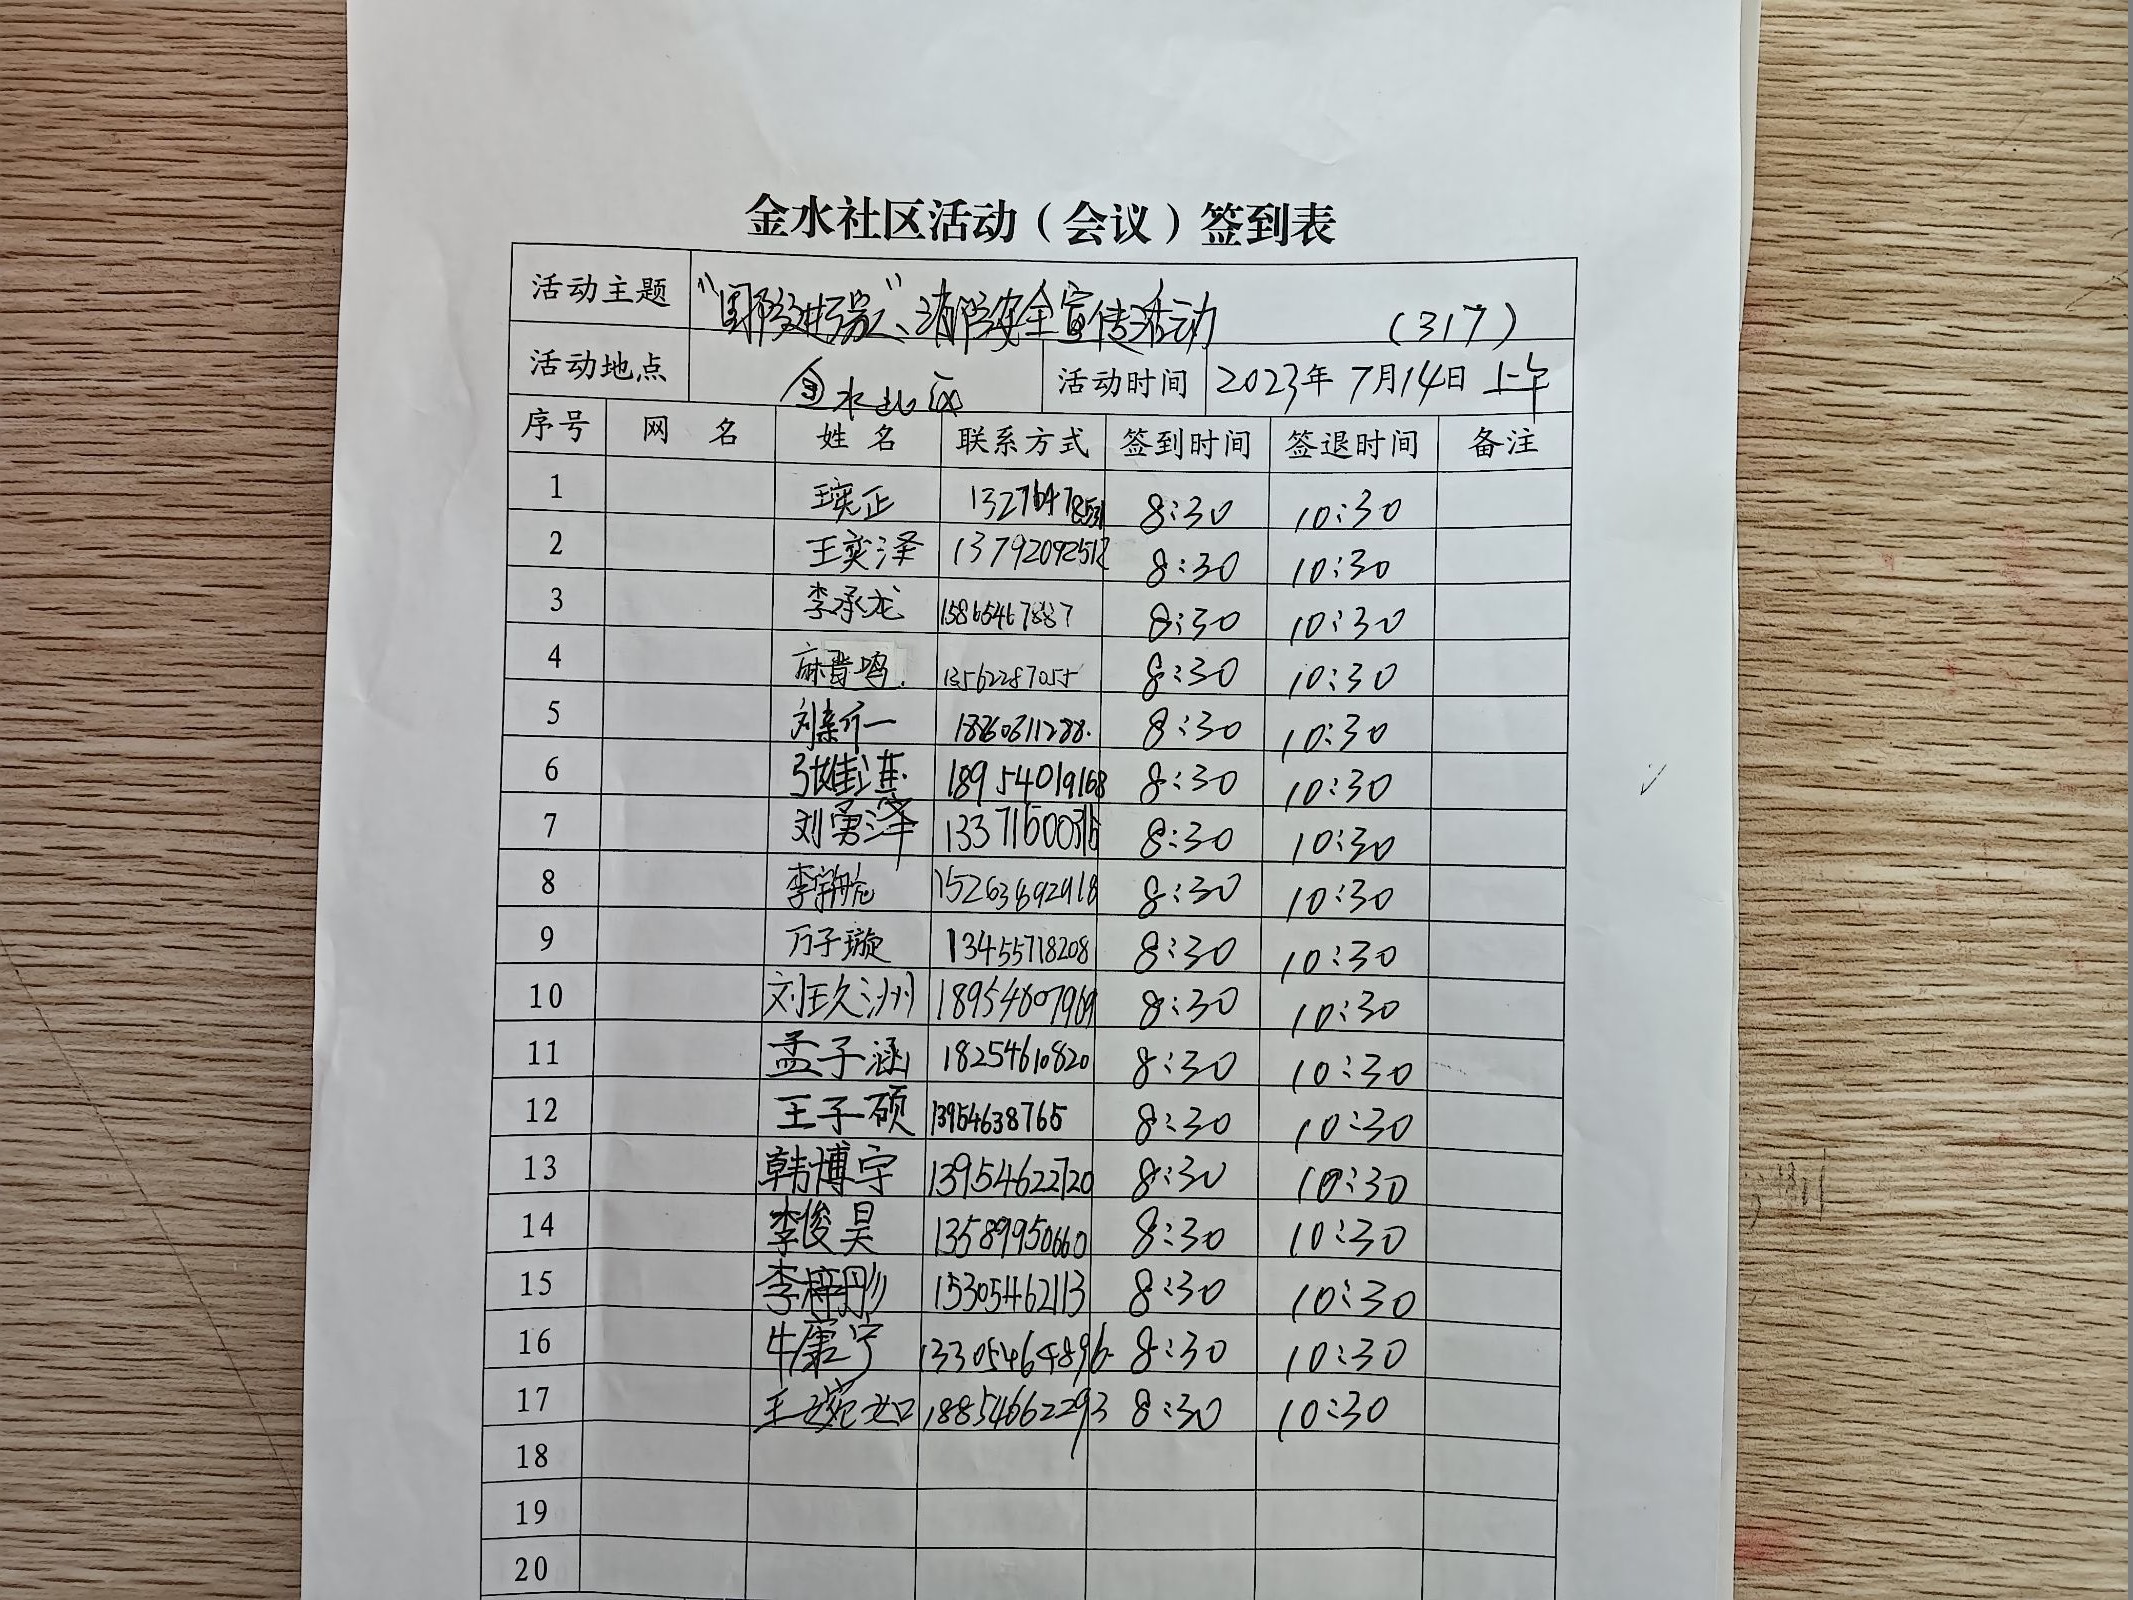 金水社区活动（会议）签到表
活动主题 消防安全宣传活动 （317）
活动地点 金水社区 活动时间 2023年 7月14日 上午
序号 网 名 姓 名 联系方式 签到时间 签退时间 备注
1 王奕正 8:30 10:30
2 王奕泽 13792092512 8:30 10:30
3 李承龙 15865467887 8:30 10:30
4 13562287055 8:30 10:30
5 刘新一 8:30 10:30
6 18954019168 8:30 10:30
7 刘勇泽 13371600316 8:30 10:30
8 15263892918 8:30 10:30
9 万子璇 13455718208 8:30 10:30
10 刘玖洲 18954607969 8:30 10:30
11 孟子涵 18254610820 8:30 10:30
12 王子硕 13954638765 8:30 10:30
13 韩博宇 13954622720 8:30 10:30
14 李俊昊 13589950660 8:30 10:30
15 李梓彤 15305462113 8:30 10:30
16 牛康宁 13305464896 8:30 10:30
17 18854662293 8:30 10:30
18
19
20